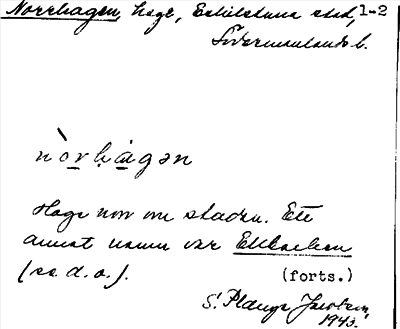 Norrhagen, hage, Eskilstuna stad, 1-2
Södermanlands l.
nòrhàgən
Hage norr om staden. Ett
annat namn var Ekbacken
(se d. o.).
(forts.)
S. Jacobsen,
1943.